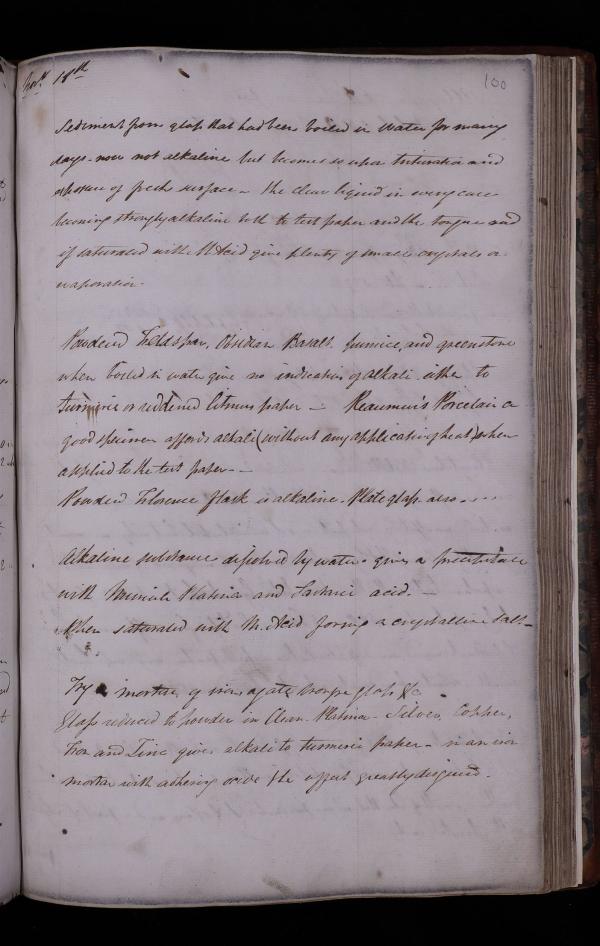 Novr. 18th
100
Sediment from glass that had been boiled in water for many
days - now not alkaline but becomes so upon trituration and
exposure of fresh surface - the clear liquid in every case
becoming strongly alkaline both to test paper and the tongue and
if saturated with M Acid give plenty of small crystals on
evaporation.
Powdered Feldspar, Obsidian Basalt, pumice, and greenstone
when boiled in water give no indications of alkali either to
turmeric or reddened litmus paper - Reaumur's Porcelain a
good specimen affords alkali (without any application of heat) when
applied to the test paper -
Powdered Florence flask is alkaline. Plate glass also - - - -
Alkaline substance dissolved by water gives a precipitate
with Muriate Platina and Tartaric acid. -
When saturated with M. Acid forming a crystalline salt -
Try a mortar of iron, agate, bronze glass &c
Glass reduced to powder in Clean Platina - Silver, Copper,
Iron and Zinc gives alkali to turmeric paper - in an iron
mortar with adhering oxide the effect greatly disguised.